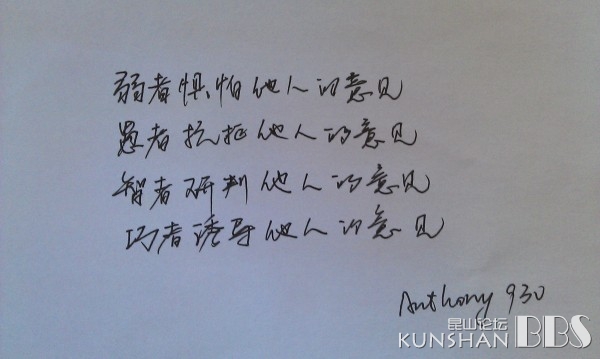 弱者惧怕他人的意见
愚者抗拒他人的意见
智者研判他人的意见
巧者诱导他人的意见
Anthony 930
昆山论坛
KUNSHAN BBS